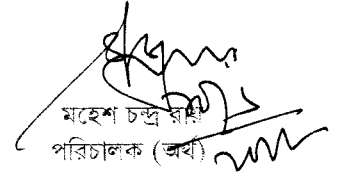 মহেশ চন্দ্র রায়
পরিচালক (অর্থ)